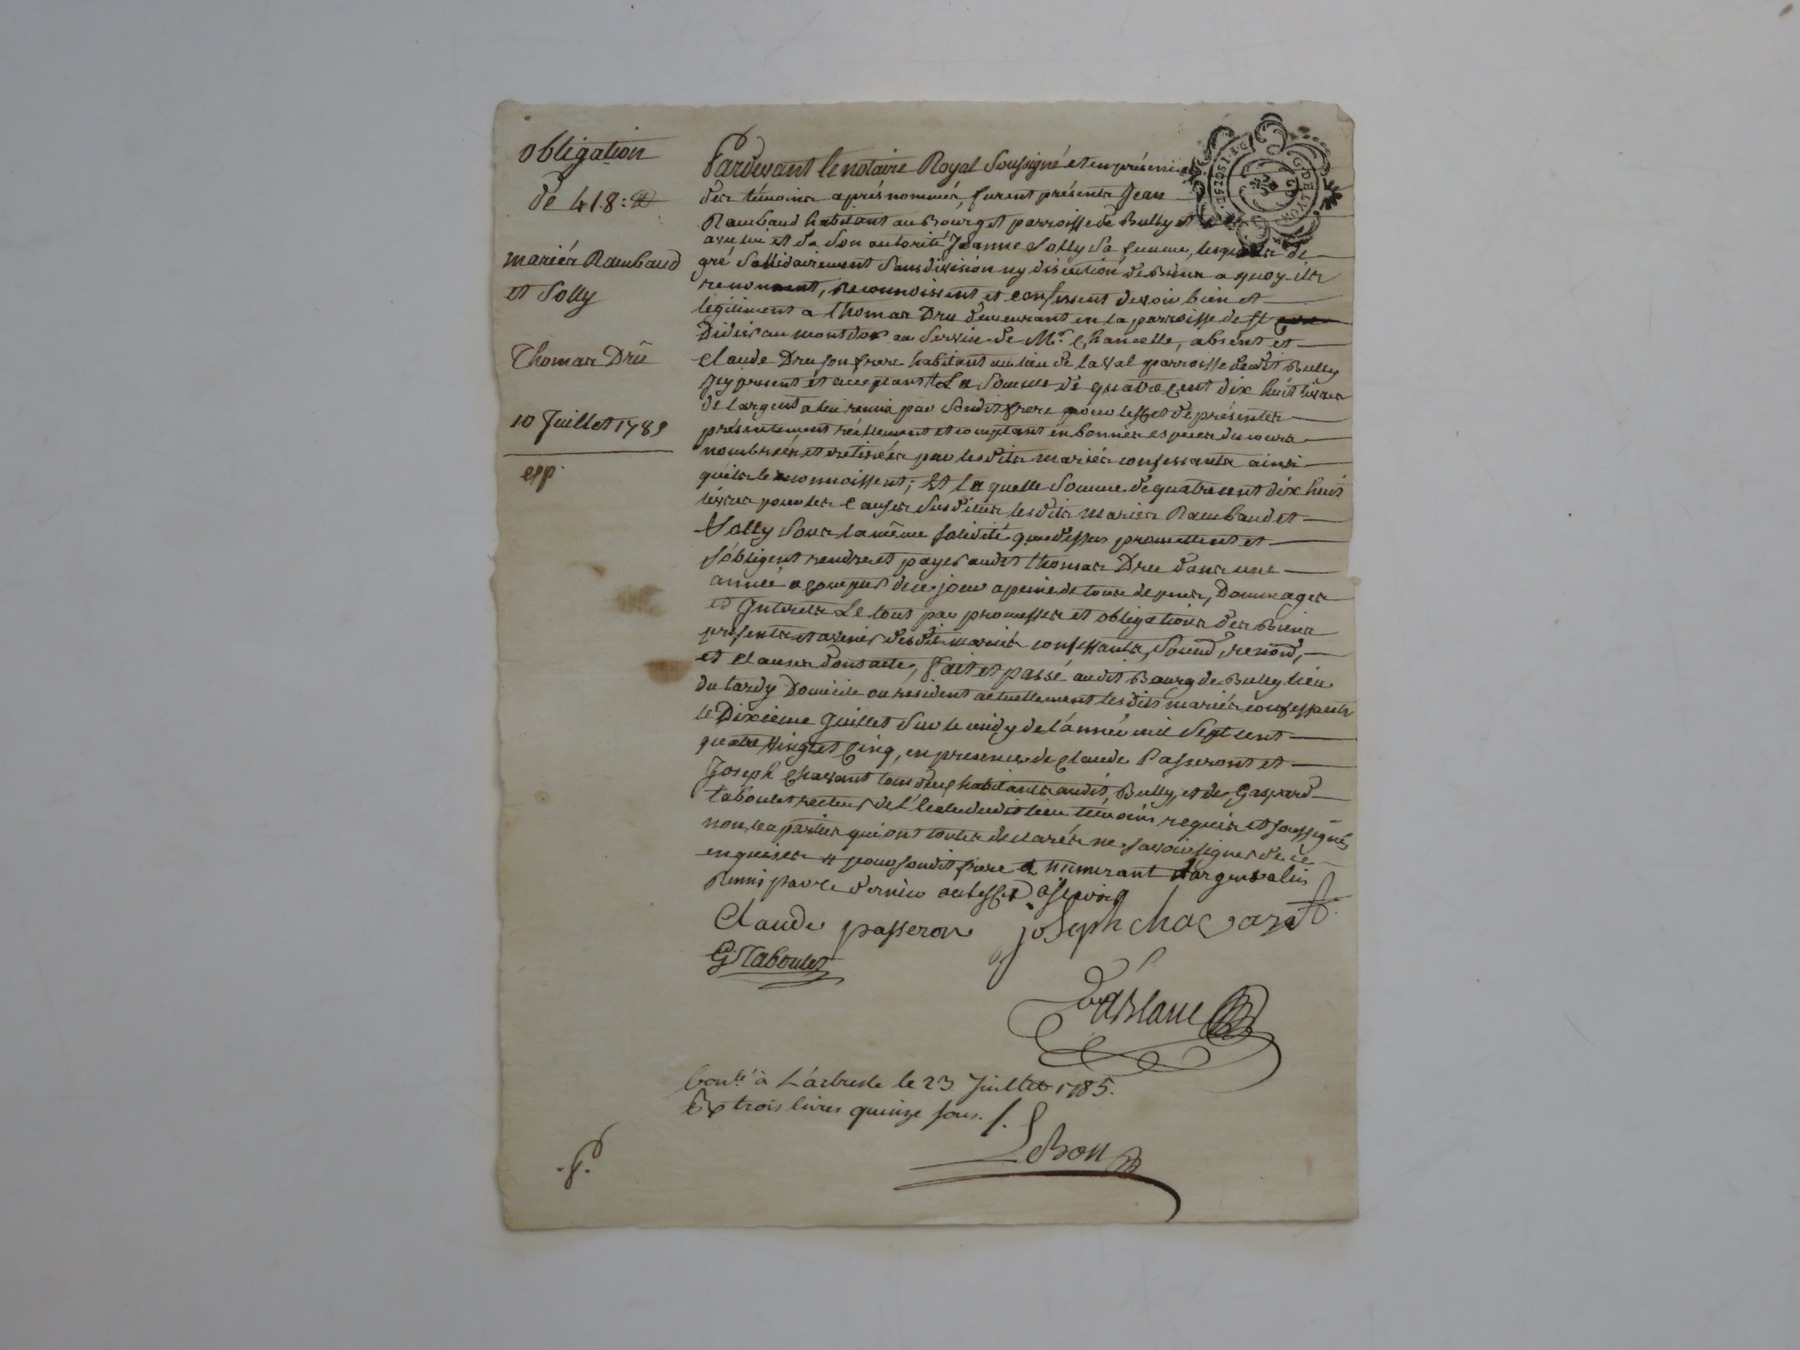 obligation
de 418:₶
mariés Rambaud
et Solly
Thomas Dru
10 Juillet 1785
exp.
Pardevant le notaire Royal Soussigné et en présence
des témoins après nommés, furent présents Jean
Rambaud habitant au Bourg et parroisse de Bully et
avec lui et de Son autorité Jeanne Solly Sa femme, lesquels de
gré Sollidairement Sans division ny discution de biens a quoy ils
renoncent, Reconnoissent et confessent devoir bien et
légitiment a Thomas Dru demeurant en la parroisse de St
Didier au mont dor au Service de Mr. Chancelle, absent et
Claude Dru son frere habitant au lieu de laval parroisse dudit Bully
icy présent et acceptant La Somme de quatre cent dix huit livres
de l'argent a lui remis par Sondit frere pour leffet des présentes
présentement réellement et comptant en bonnes especes du cours
nombrées et retirées par lesdits mariés confessants ainsi
quils le reconnoissent; Et la quelle Somme de quatre cent dix huit
livres pour les Causes Susdites lesdits mariés Rambaud et
Solly Sous la même solidité que dessus promettent et
s'obligent rendre et payer audit Thomas Dru dans une
année a compter de ce jour a peine de tous depens, Dommages
et Interets Le tout par promesses et obligations des Biens
présents et avenir desdits mariés confessants, Soumd, renond,
et Clauses Dont acte, fait et passé audit Bourg de Bully lieu
du tardy Domicile ou resident actuellement lesdits mariés confessants
le Dixieme Juillet Sur le midy de l'année mil Sept cent
quatre vingt Cinq, en presence de Claude Passeront et
Joseph Chavant tous deux habitants audit Bully, et de Gaspard
Taboulet recteur de l'Ecole dudit lieu témoins requis et soussignés
non les parties qui ont toutes declarées ne savoir signer de ce
enquises # pour sondit frere et numerant d'argent a lui
Remis par ce dernier a cet effet
Claude passeron Joseph chavant
G Taboulet
Lablanc
Conlé à L'arbresle le 23 Juillet 1785.
trois livres quinze sous.
Lebon
G. DE LYON